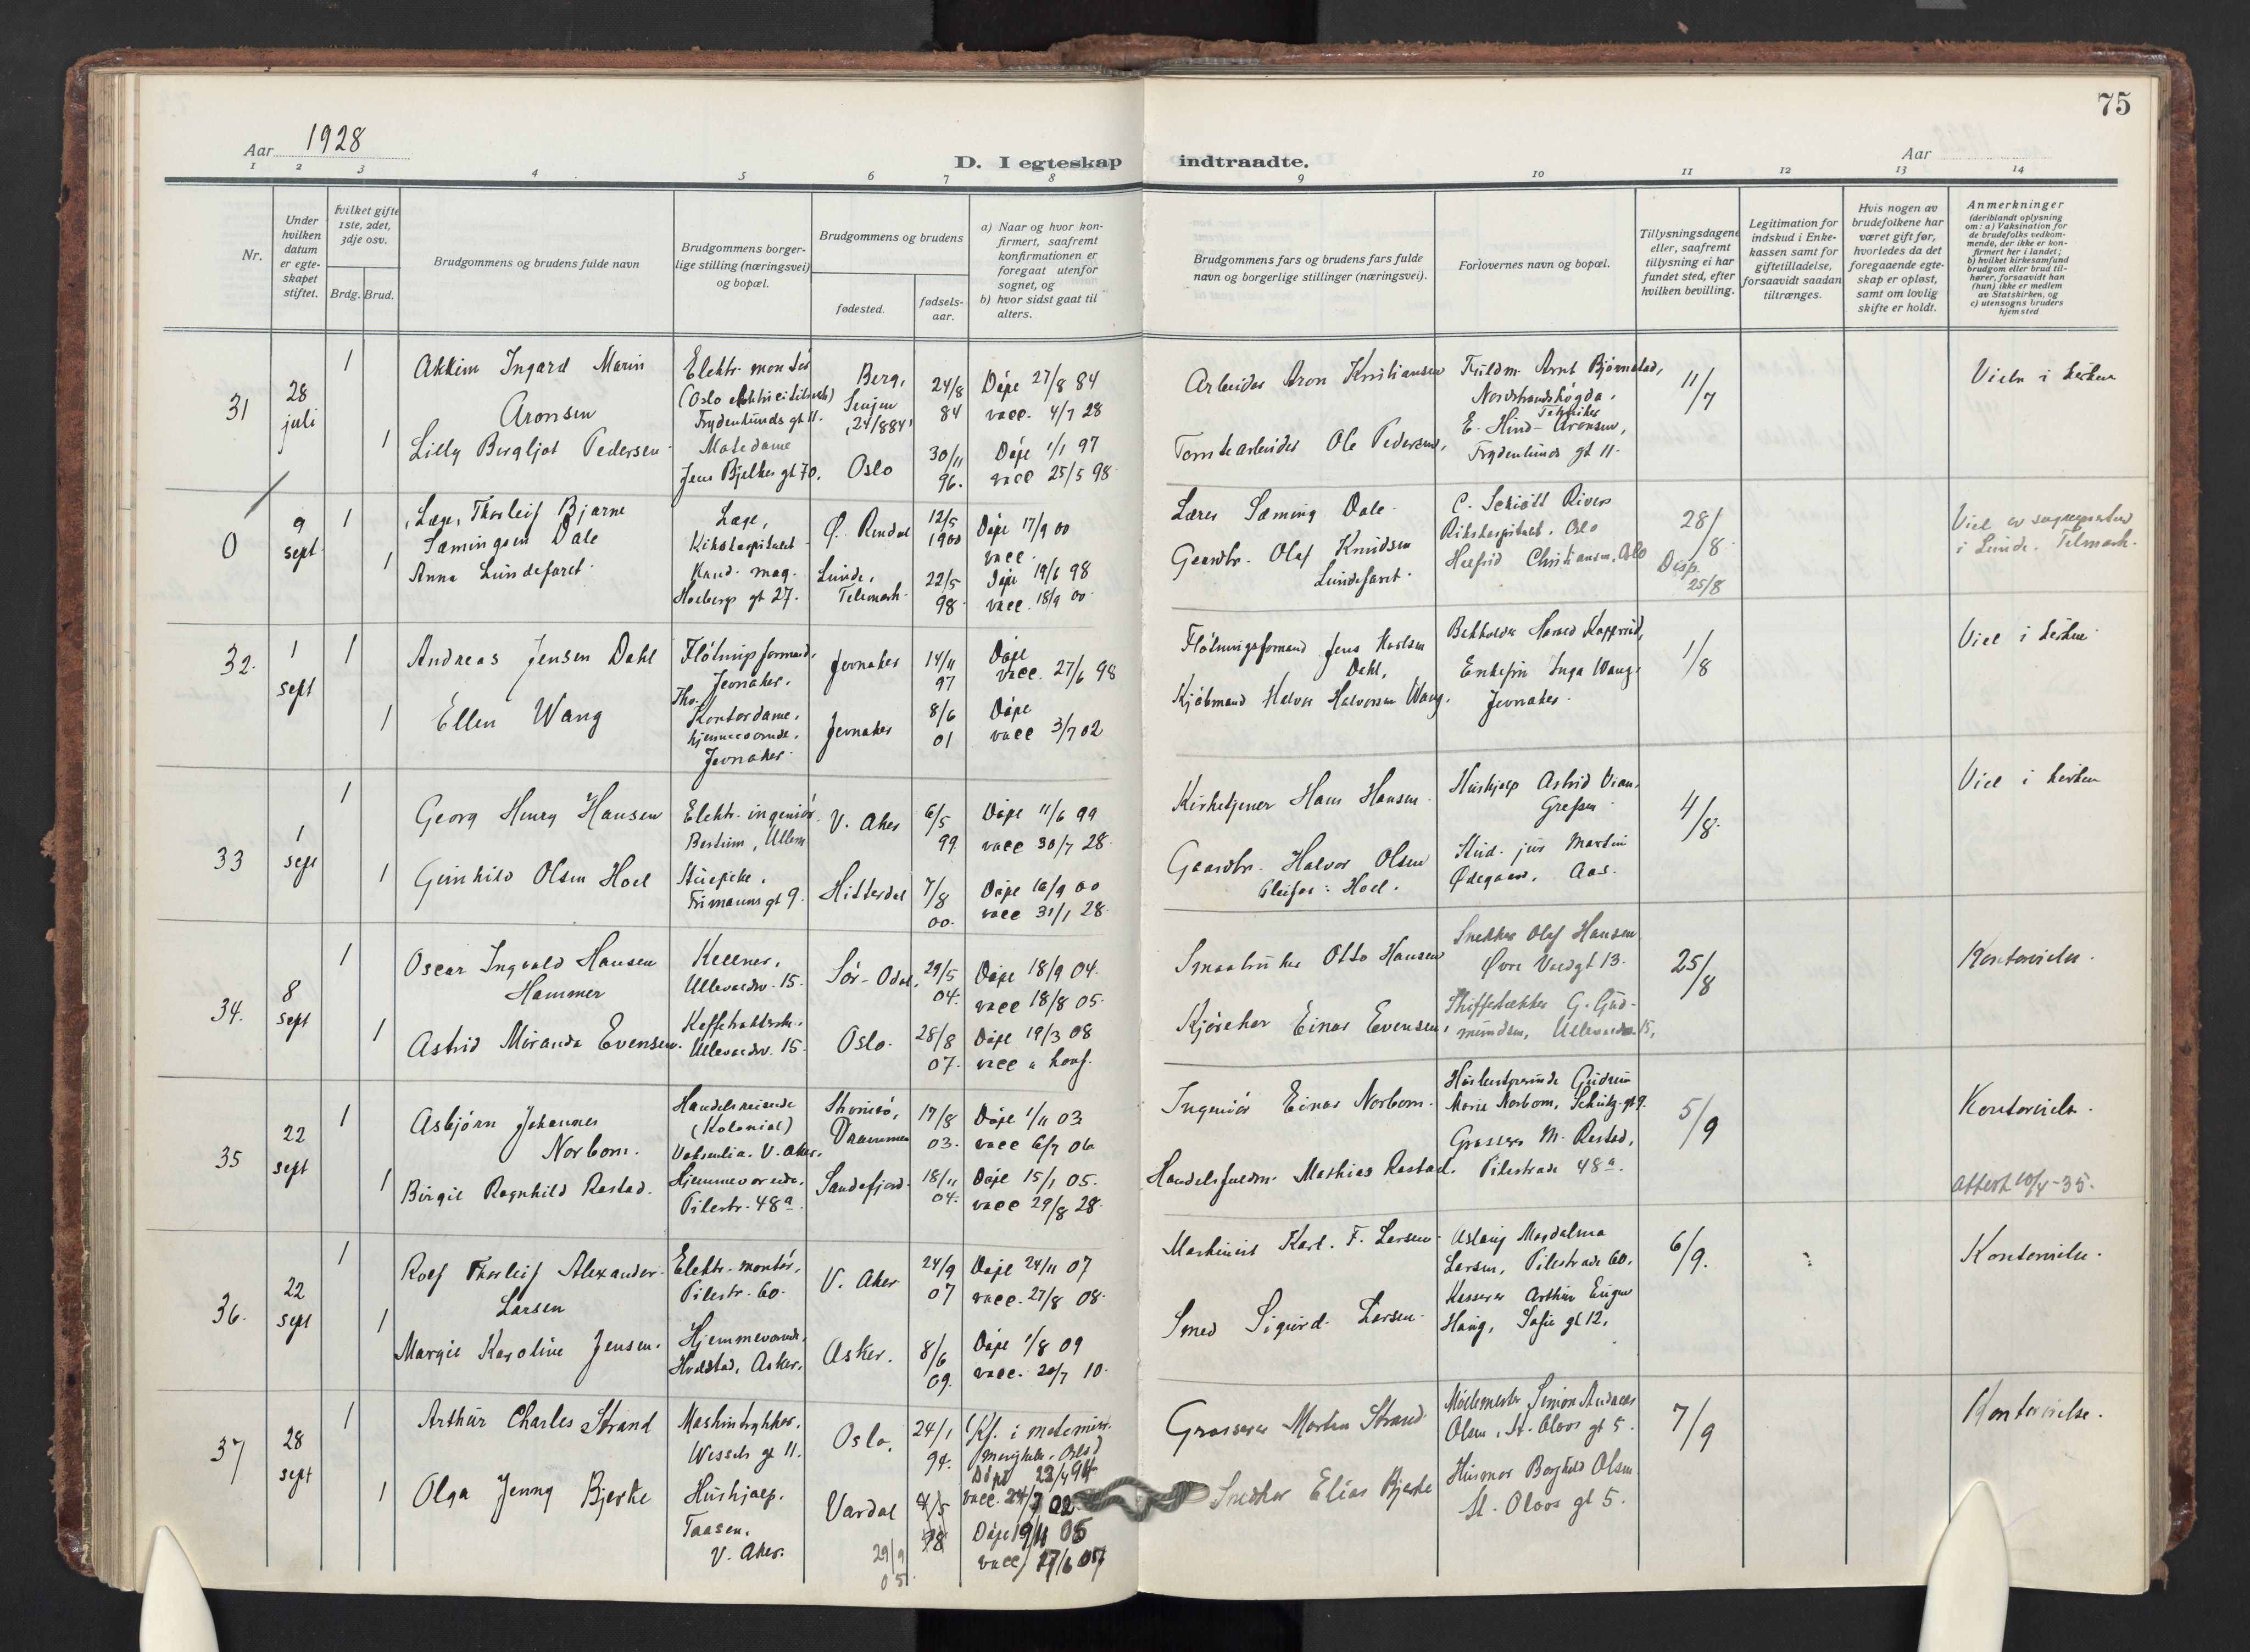 75
Aar 1928
D. I egteskap indtraadte.
Aar
1 2 3 4 5 6 7 8 9 10 11 12 13 14
Nr.
Under hvilken datum er egte-skapet stiftet.
Hvilket gifte 1ste, 2det, 3dje osv.
Brdg. Brud.
Brudgommens og brudens fulde navn
Brudgommens borger-
lige stilling (næringsvei)
og bopæl.
Brudgommens og brudens
fødested.
fødsels-
aar.
a) Naar og hvor kon-
firmert, saafremt
konfirmationen er
foregaat utenfor
sognet, og
b) hvor sidst gaat til
alters.
Brudgommens fars og brudens fars fulde
navn og borgerlige stillinger (næringsvei).
Forlovernes navn og bopæl.
Tillysningsdagene
eller, saafremt
tillysning ei har
fundet sted, efter
hvilken bevilling.
Legitimation for
indskud i Enke-
kassen samt for
giftetilladelse,
forsaavidt saadan
tiltrænges.
Hvis nogen av
brudefolkene har
været gift før,
hvorledes da det
foregaaende egte-
skap er opløst,
samt om lovlig
skifte er holdt.
Anmerkninger
(deriblandt oplysning
om: a) Vaksination for
de brudefolks vedkom-
mende, der ikke er kon-
firmert her i landet;
b) hvilket kirkesamfund
brudgom eller brud til-
hører, forsaavidt han
(hun) ikke er medlem
av Statskirken, og
c) utensogns bruders
hjemsted
31
28
juli
1
Akkim Ingard Marin
Aronsen
Elektr. montør
Frydenlunds gt 11.
Berg,
Senjen
24/8
84
Døpt 27/8 84
vacc. 4/7 28
Arbeider Aron Kristiansen
Arnt Bjørnstad,
Nordstrandshøgda,
E. Hind-Aronsen,
Frydenlunds gt 11.
11/7
Viet i kirken
1
Lilly Bergljot Pedersen
Jens Bjelkes gt 70.
Oslo
30/11
96.
Døpt 1/1 97
vacc 25/5 98
Tomtearbeider Ole Pedersen,
0
9
sept.
1
Læge, Thorleif Bjarne
Sæmingsen Dale
Læge,
Rikshospitalet
Ø. Rendal
12/5
1900
Døpt 17/9 00
vacc.
Lærer Sæming Dale.
Rikshospitalet, Oslo
28/8
Disp.
25/8
i Lunde, Telmark.
1
Anna Lundefaret.
Kand. mag.
Holbergs gt 27.
Lunde,
Telemark.
22/5
98
Døpt 19/6 98
vacc. 18/9 00
Gaardbr. Olaf Knudsen
Lundefaret.
Christiansen, Oslo
32.
1
sept
1
Andreas Jensen Dahl
Fløtningsformand,
Jevnaker.
Jevnaker
14/11
97
Døpt
vacc. 27/6 98
Fløtningsformand Jens Karlsen
Dahl,
Enkefru Inga Wang
Jevnaker.
1/8
Viet i kirken
1
Ellen Wang
Kontordame,
hjemmeværende,
Jevnaker.
Jevnaker
8/6
01
Døpt
vacc 3/7 02
Kjøbmand Halvor Halvorsen Wang.
33
1
sept
1
Georg Henry Hansen
Elektr. ingeniør.
Bestum, Ullern
V. Aker
6/5
99
Døpt 11/6 99
vacc 30/7 28
Kirketjener Hans Hansen.
Hushjælp Astrid
Grefsen
4/8.
Viet i kirken
1
Gunhild Olsen Hoel
Stuepike,
Frimanns gt 9.
Hitterdal
7/8
00.
Døpt 16/9 00
vacc 31/1 28
Gaardbr. Halvor Olsen
Hoel.
Stud. jur Martin
Ødegaard, Aas.
34.
8
sept
1
Oscar Ingvald Hansen
Hammer
Kellner,
Ullevaalsv. 15.
Sør-Odal,
29/5
04.
Døpt 18/9 04.
vacc 18/8 05.
Smaabruker Otto Hansen
Snekker Olaf Hansen
Øvre Voldgt 13.
25/8
Kontorvielse.
1
Astrid Miranda Evensen.
Ullevaalsv. 15.
Oslo.
28/8
07.
Døpt 19/3 08
vacc u konf.
Kjørekar Einar Evensen,
G. Gud-
mundsen, Ullevaalsv. 15,
35
22
sept
1
Asbjørn Johannes
Norbom.
Handelsreisende
(Kolonial)
Voksenlia. V. Aker.
Strømsø,
Drammen
17/8
03.
Døpt 1/11 03
vacc 6/7 06
Ingeniør Einar Norbom.
Husbestyrerinde Gudrun
Marie Norbom, Schultz gt 9.
5/9
Kontorvielse.
1
Birgit Ragnhild Rastad.
Hjemmeværende,
Pilestr. 48a.
Sandefjord.
18/11
04.
Døpt 15/1 05.
vacc 29/8 28.
Handelsfuldm. Mathias Rastad.
Grosserer M. Rastad,
Pilestræde 48a.
Attest 10/4-35.
36.
22
sept
1
Rolf Thorleif Alexander
Larsen
Elektr. montør,
Pilestr. 60.
V. Aker
24/9
07
Døpt 24/11 07
vacc. 27/8 08.
Maskinist Karl. F. Larsen
Aslaug Magdalena
Larsen, Pilestræde 60.
6/9.
Kontorvielse.
1
Margit Karoline Jensen.
Hjemmeværende,
Hvalstad, Asker.
Asker.
8/6
09.
Døpt 1/8 09
vacc. 20/7 10.
Smed Sigurd Larsen
Kasserer Arthur Eugen
Haug, Sofie gt 12.
37
28
sept
1
Arthur Charles Strand
Maskintrykker,
Wessels gt 11.
Oslo.
24/1
94.
Kf. i metodist.
Døpt 22/4 94
vacc. 24/7 02
Grosserer Morten Strand
Simon Andreas
Olsen, St. Olavs gt 5.
7/9
Kontorvielse.
1
Olga Jenny Bjerke
Hushjælp.
Taasen.
V. Aker.
Vardal
29/9
05
Døpt 19/11 05
vacc. 17/6 07
Snekker Elias Bjerke
Husmor Borghild Olsen
St. Olavs gt 5.